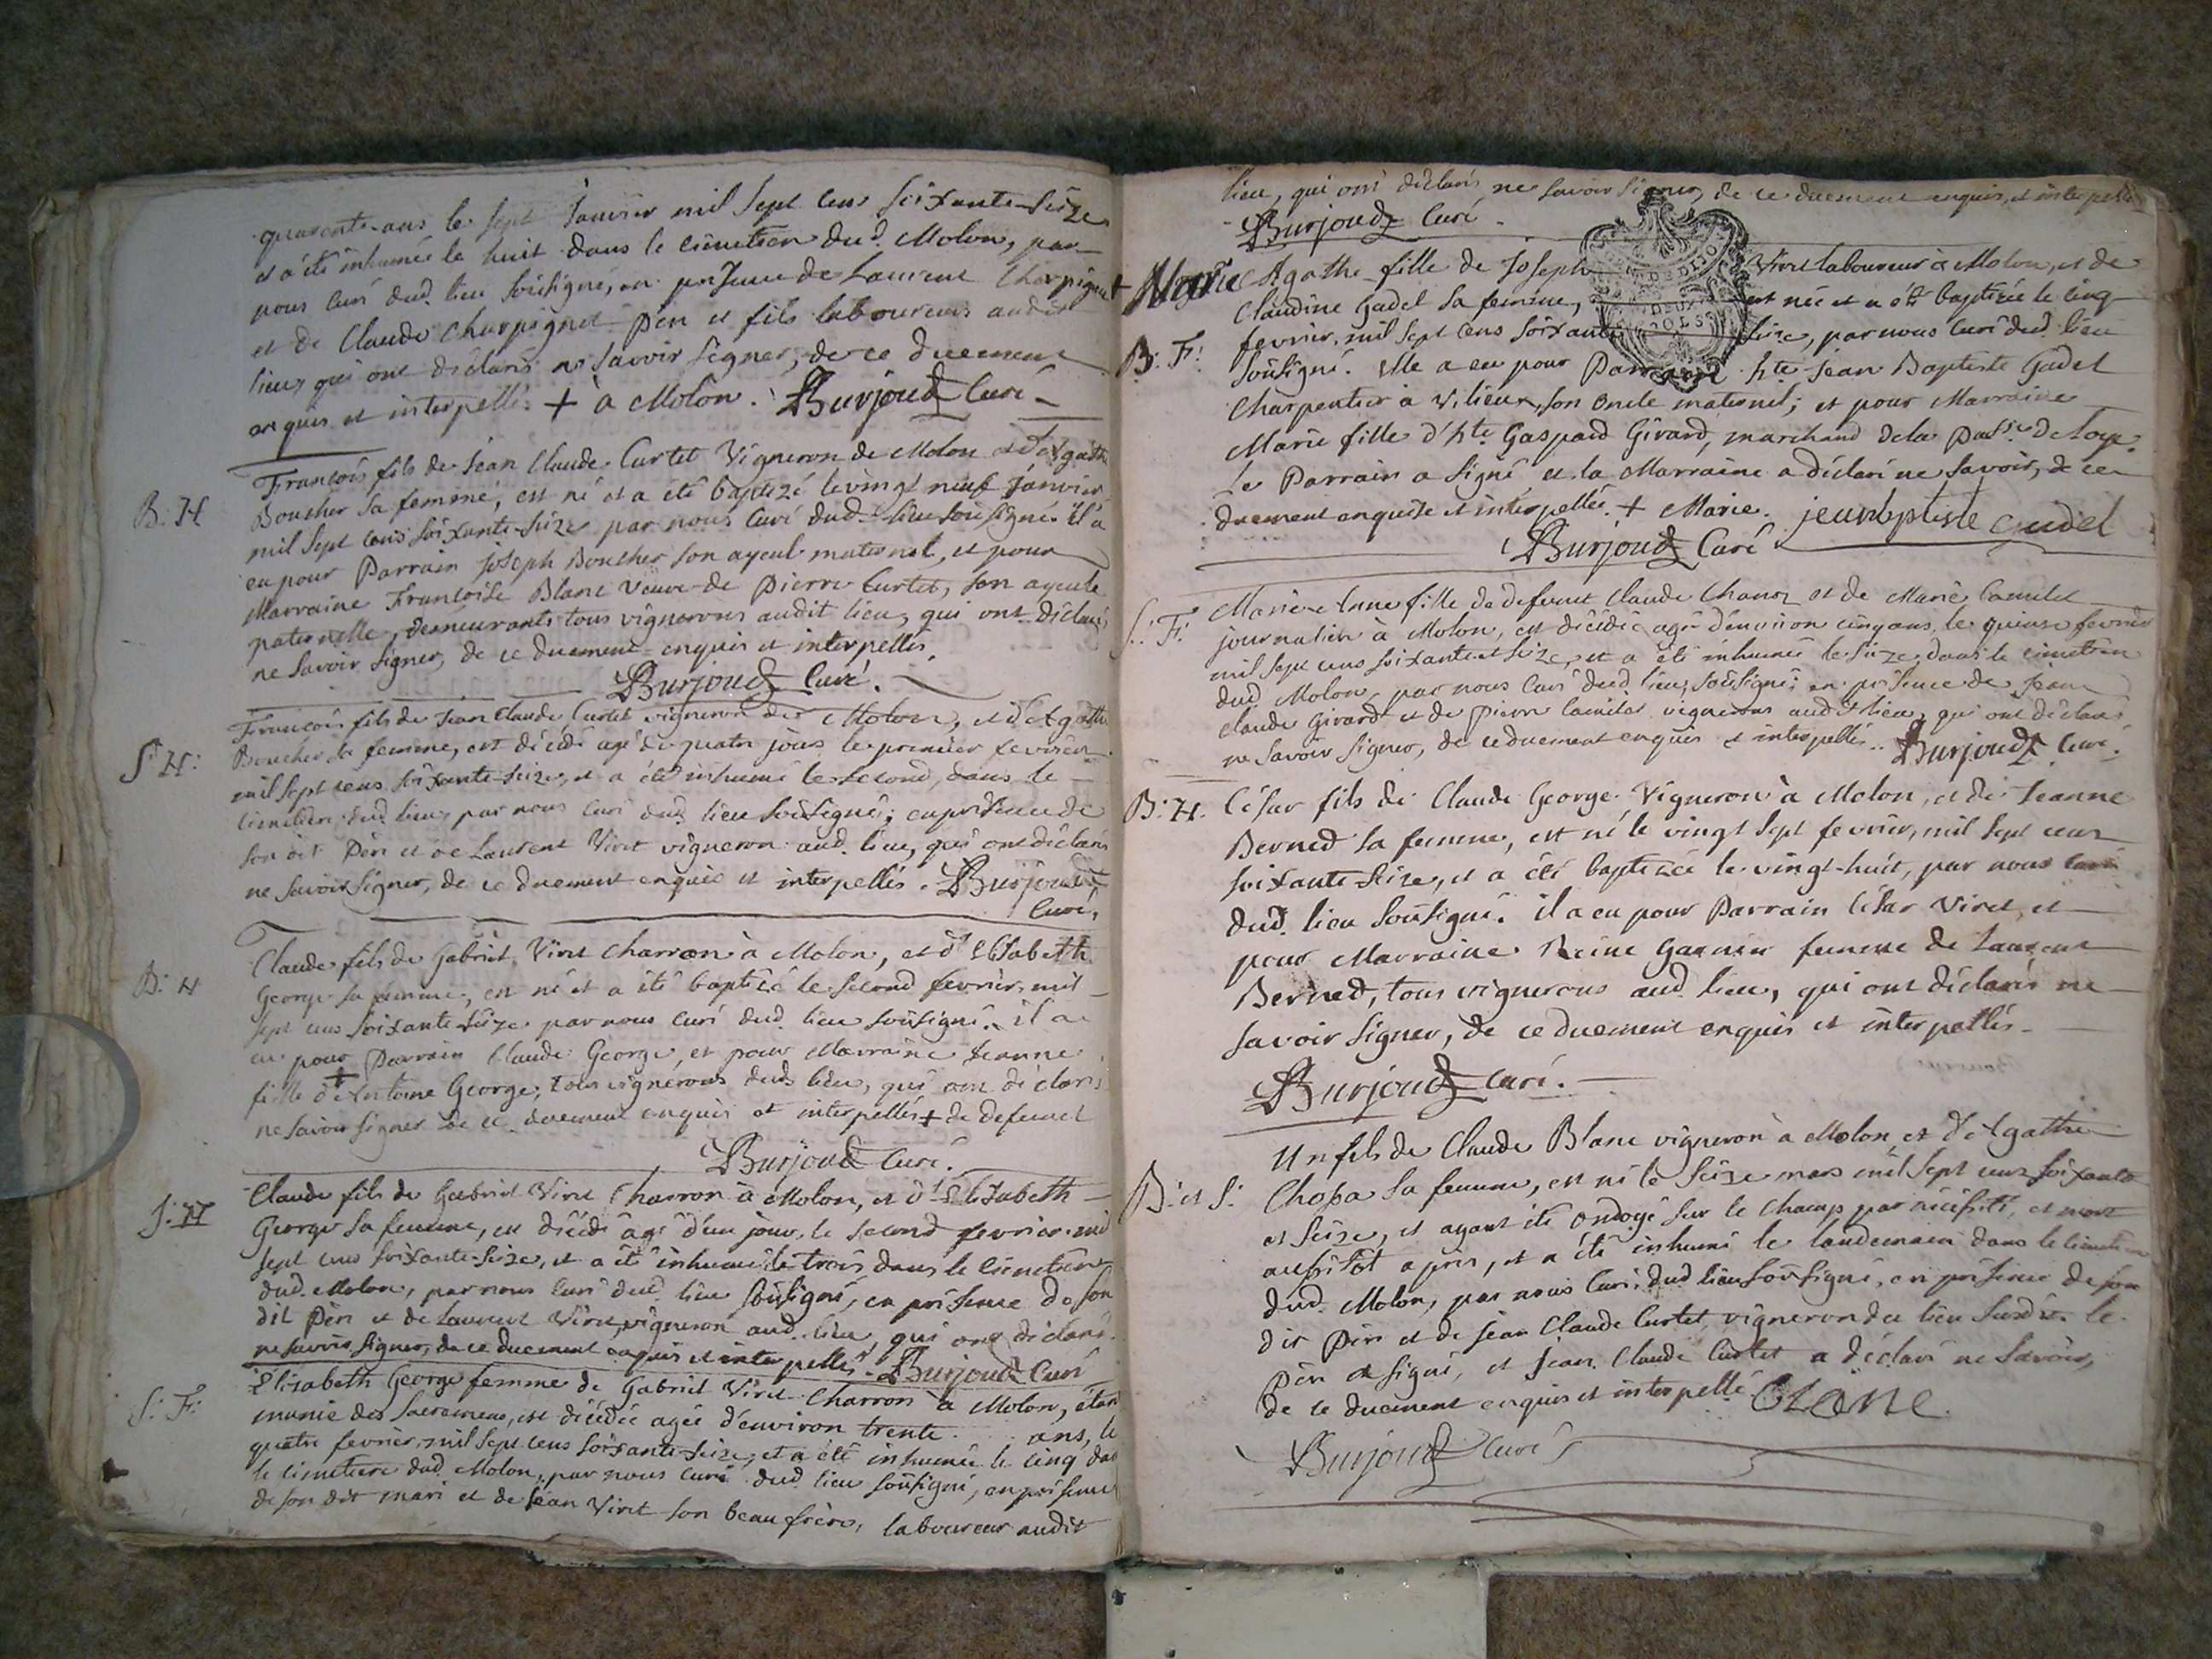 quarente ans le sept Janvier mil sept cens soixante-seize
et a été inhumée le huit dans le cimetiere dud. Molon, par
nous Curé dud. lieu soussigné, en présence de Laurent Charpignet
et de Claude Charpignet Pere et fils laboureurs audit
lieu, qui ont déclarés ne savoir signer, de ce duement
enquis et interpellés + à Molon. Burjoud Curé
B. H
François fils de Jean Claude Curtet Vigneron de Molon et d'Agathe
Boucher sa femme, est né et a été baptizé le vingt neuf Janvier
mil sept cens soixante-seize par nous Curé dud. lieu soussigné. il a
eu pour Parrain Joseph Boucher son ayeul maternel, et pour
Marraine Françoise Blanc Veuve de Pierre Curtet, son ayeule
paternelle, demeurants tous vignerons audit lieu, qui ont déclarés
ne savoir signer, de ce duement enquis et interpellés.
Burjoud Curé.
S. H:
François fils de Jean Claude Curtet vigneron de Molon, et d'Agathe
Boucher sa femme, est décédé agé de quatre jours le premier fevrier
mil sept cens soixante-seize, et a été inhumé le second, dans le
cimetiere dud. lieu, par nous Curé dud. lieu soussigné, en présence de
son dit Pere et de Laurent Viret vigneron aud. lieu, qui ont déclarés
ne savoir signer, de ce duement enquis et interpellés. Burjoud
Curé.
B: H
Claude fils de Gabriel Viret Charron à Molon, et d'Elisabeth
George sa femme, est né et a été baptizé le second fevrier, mil
sept cens soixante-seize par nous Curé dud. lieu soussigné. il a
eu pour Parrain Claude George, et pour Marraine Jeanne
fille + d'Antoine George; tous vignerons dud. lieu, qui ont déclarés
ne savoir signer de ce duement enquis et interpellés + de defunct
Burjoud Curé.
S: H
Claude fils de Gabriel Viret Charron à Molon, et d'Elisabeth
George sa femme, est décédé agé d'un jour, le second fevrier mil
sept cens soixante-seize, et a été inhumé le trois dans le cimetiere
dud. Molon, par nous Curé dud. lieu soussigné, en présence de son
dit Pere et de Laurent Viret, vigneron aud. lieu, qui ont déclarés
ne savoir signer, de ce duement enquis et interpellés. Burjoud Curé
S: F:
Elisabeth George femme de Gabriel Viret Charron à Molon, étant
munie des Sacremens, est décédée agée d'environ trente ans, le
quatre fevrier, mil sept cens soixante-seize, et a été inhumée le cinq dans
le cimetiere dud. Molon, par nous Curé dud. lieu soussigné, en présence
de son dit mari et de Jean Viret son beau frere, laboureur audit
lieu, qui ont déclarés ne savoir signer, de ce duement enquis, et interpellés
Burjoud Curé.
B: F:
+ Marie Agathe fille de Joseph Viret laboureur à Molon, et de
Claudine Gudel sa femme, est née et a été baptizée le cinq
fevrier, mil sept cens soixante seize, par nous Curé dud. lieu
soussigné. elle a eu pour Parrain hte. Jean Baptiste Gudel
Charpentier à Vilieux, son oncle maternel; et pour Marraine
Marie fille d'hte. Gaspard Girard, marchand de la Passe. de Loye.
Le Parrain a signé et la Marraine a déclaré ne savoir, de ce
duement enquise et interpellée. + Marie. jeunbptiste cudel
Burjoud Curé
S: F:
Marie Anne fille de defunct Claude Chanoz et de Marie Camelet
journalier à Molon, est décédée agée d'environ cinq ans, le quinze fevrier
mil sept cens soixante et seize, et a été inhumée le seize, dans le cimetiere
dud. Molon, par nous Curé dud. lieu, soussigné; en présence de Jean
Claude Girard et de Pierre Camelet vignerons audit lieu, qui ont déclarés
ne savoir signer, de ce duement enquis et interpellés. Burjoud Curé.
B: H.
César fils de Claude George Vigneron à Molon, et de Jeanne
Berned sa femme, est né le vingt sept fevrier, mil sept cens
soixante-seize, et a été baptizé le vingt-huit, par nous Curé
dud. lieu soussigné. il a eu pour Parrain César Viret, et
pour Marraine Reine Garnier femme de Laurent
Berned, tous vignerons aud. lieu, qui ont déclarés ne
savoir signer, de ce duement enquis et interpellés.
Burjoud Curé.
B: et S:
Un fils de Claude Blanc vigneron à Molon et d'Agathe
Chossa sa femme, est né le seize mars mil sept cens soixante
et seize, et ayant été ondoyé sur le champ par nécessité, et mort
aussitôt apres, et a été inhumé le landemain dans le cimetiere
dud. Molon, par nous Curé dud. lieu soussigné, en présence de son
dit Pere et de Jean Claude Curtet, vigneron du lieu susdit. le
Pere a signé, et Jean Claude Curtet a déclaré ne savoir,
de ce duement enquis et interpellé.
Burjoud Curé